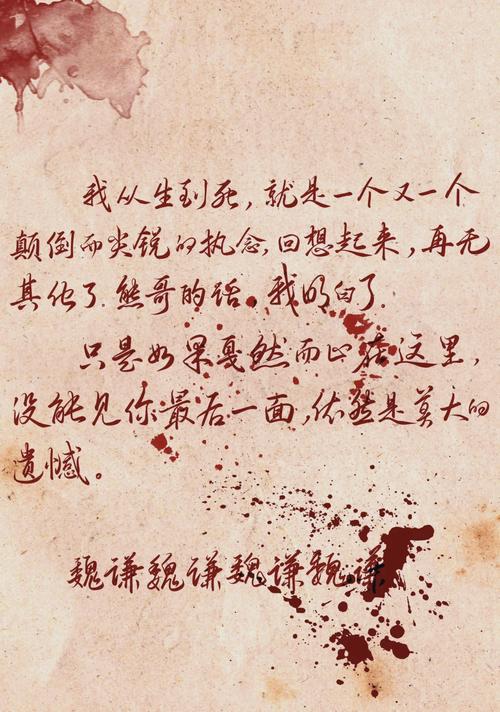 我从生到死，就是一个又一个
颠倒而尖锐的执念，回想起来，再无
其他了．熊哥的话，我明白了．
只是如果戛然而止在这里，
没能见你最后一面，依然是莫大的
遗憾。
魏谦魏谦魏谦魏谦